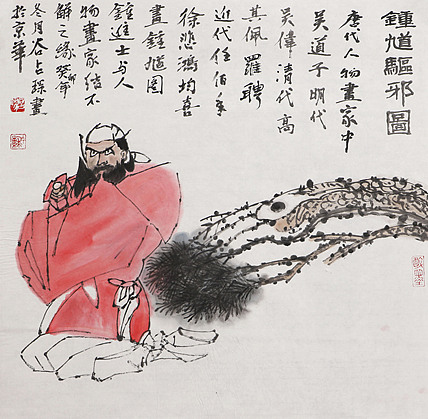 鍾馗驅邪圖
唐代人物畫家中
吴道子明代
吴偉清代高
其佩羅聘
近代任伯年
徐悲鴻均喜
畫鍾馗圖
鍾進士与人
物畫家結不
解之緣癸
冬月谷占琛畫
於京華